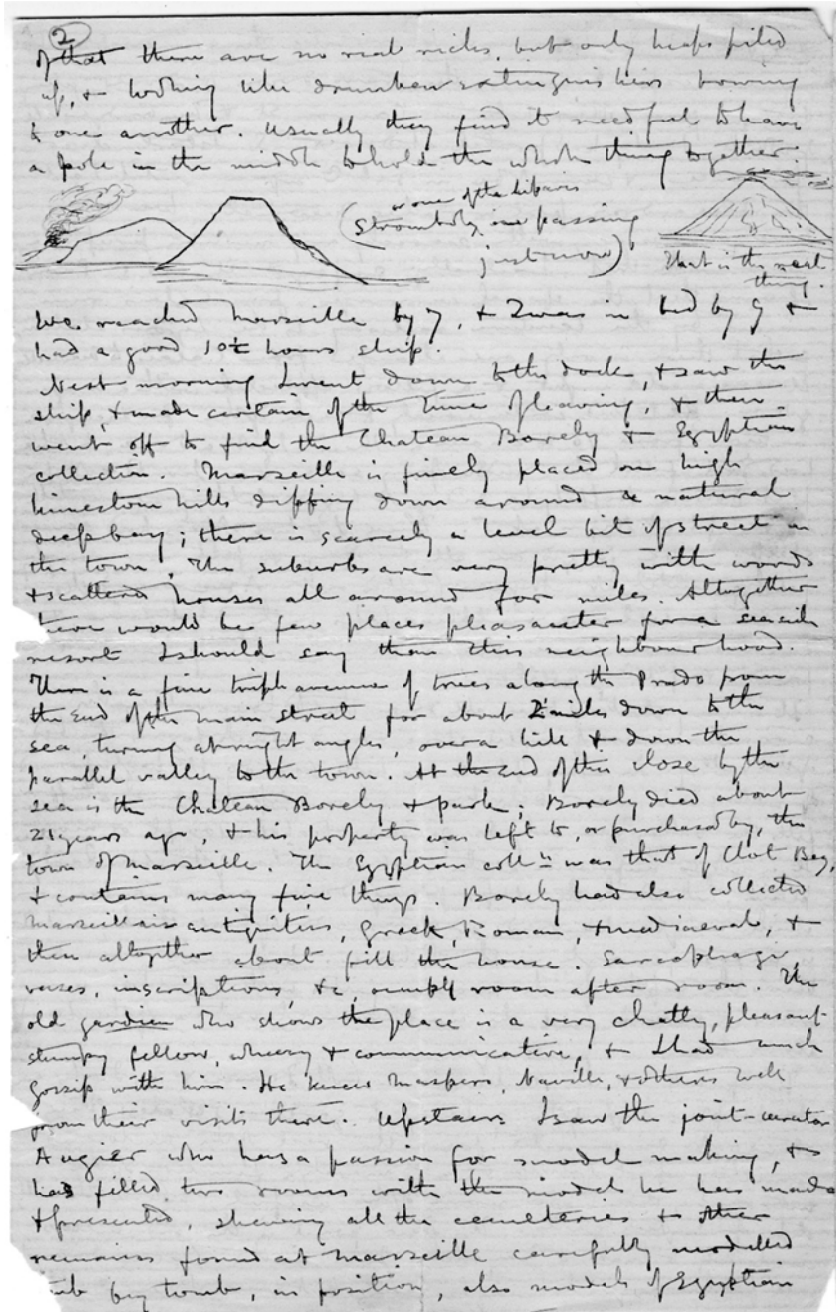 2
of that there are no real ricks, but only heaps piled
up, & looking like drunken extinguishers bowing
to one another. Usually they find it needful to have
a pole in the middle to hold the whole thing together.
or one of the Liparis
(Stromboli, in passing
just now)
that is the real
thing.
We reached Marseille by 7, & I was in bed by 9 &
had a good 10½ hours sleep.
Next morning I went down to the dock, & saw the
ship, & made certain of the time of leaving, & then
went off to find the Chateau Borely & Egyptian
collection. Marseille is finely placed on high
limestone hills dipping down around a natural
deep bay; there is scarcely a level bit of street in
the town. The suburbs are very pretty with woods
& scattered houses all around for miles. Altogether
there would be few places pleasanter for a seaside
resort I should say than this neighbourhood.
There is a fine triple avenue of trees along the Prado from
the end of the main street for about 2 miles down to the
sea, turning at right angles, over a hill & down the
parallel valley to the town. At the end of this close by the
sea is the Chateau Borely & park; Borely died about
21 years ago, & his property was left to, or purchased by, the
town of Marseille. The Egyptian colln was that of Clot Bey,
& contains many fine things. Borely had also collected
Marseillais antiquities, Greek, Roman, & mediaeval, &
these altogether about fill the house. Sarcophagi,
vases, inscriptions, &c, occupy room after room. The
old gardien who shows the place is a very chatty, pleasant
stumpy fellow, wheezy & communicative, & I had much
gossip with him. He knew Maspero, Naville, & others well
from their visits there. Upstairs I saw the joint-curator
Augier who has a passion for model making, &
has filled two rooms with the models he has made
& presented, shewing all the cemeteries & other
remains found at Marseille carefully modelled
tomb by tomb, in position, also models of Egyptian